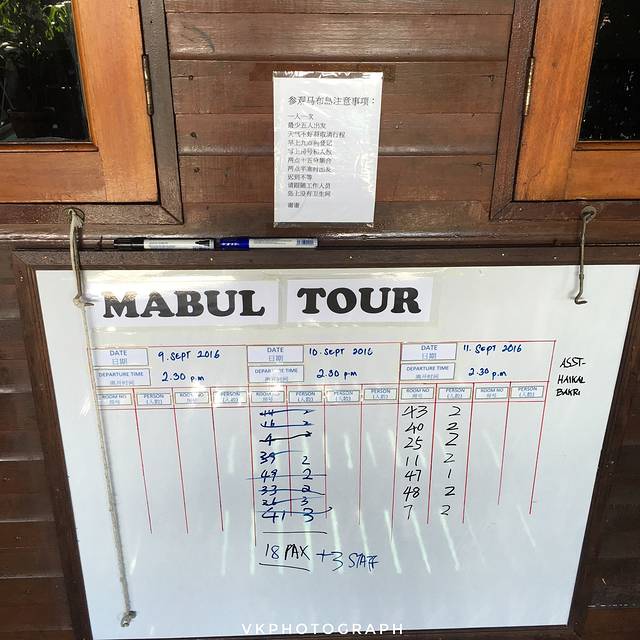 参观马布岛注意事项：
一人一次
最少五人出发
天气不好将取消行程
早上九点前登记
写上房号和人数
两点十五分集合
两点半准时出发
迟到不等
请跟随工作人员
岛上没有卫生间
谢谢
MABUL TOUR
DATE 日期 9. SEPT 2016 DATE 日期 10. SEPT 2016 DATE 日期 11. SEPT 2016
DEPARTURE TIME 2.30 p.m DEPARTURE TIME 2.30 p.m DEPARTURE TIME 2.30 p.m
ASST- HAIKAL BAKRI
ROOM NO 房号 PERSON (人数) ROOM NO 房号 PERSON (人数) ROOM NO 房号 PERSON (人数) PERSON (人数) ROOM NO 房号 PERSON (人数) ROOM NO 房号 PERSON (人数)
43 2
16 2 40 2
4 25 2
39 2 11 2
49 2 47 1
33 2 48 2
26 3 7 2
41 3
18 PAX +3 STAFF
VKPHOTOGRAPH